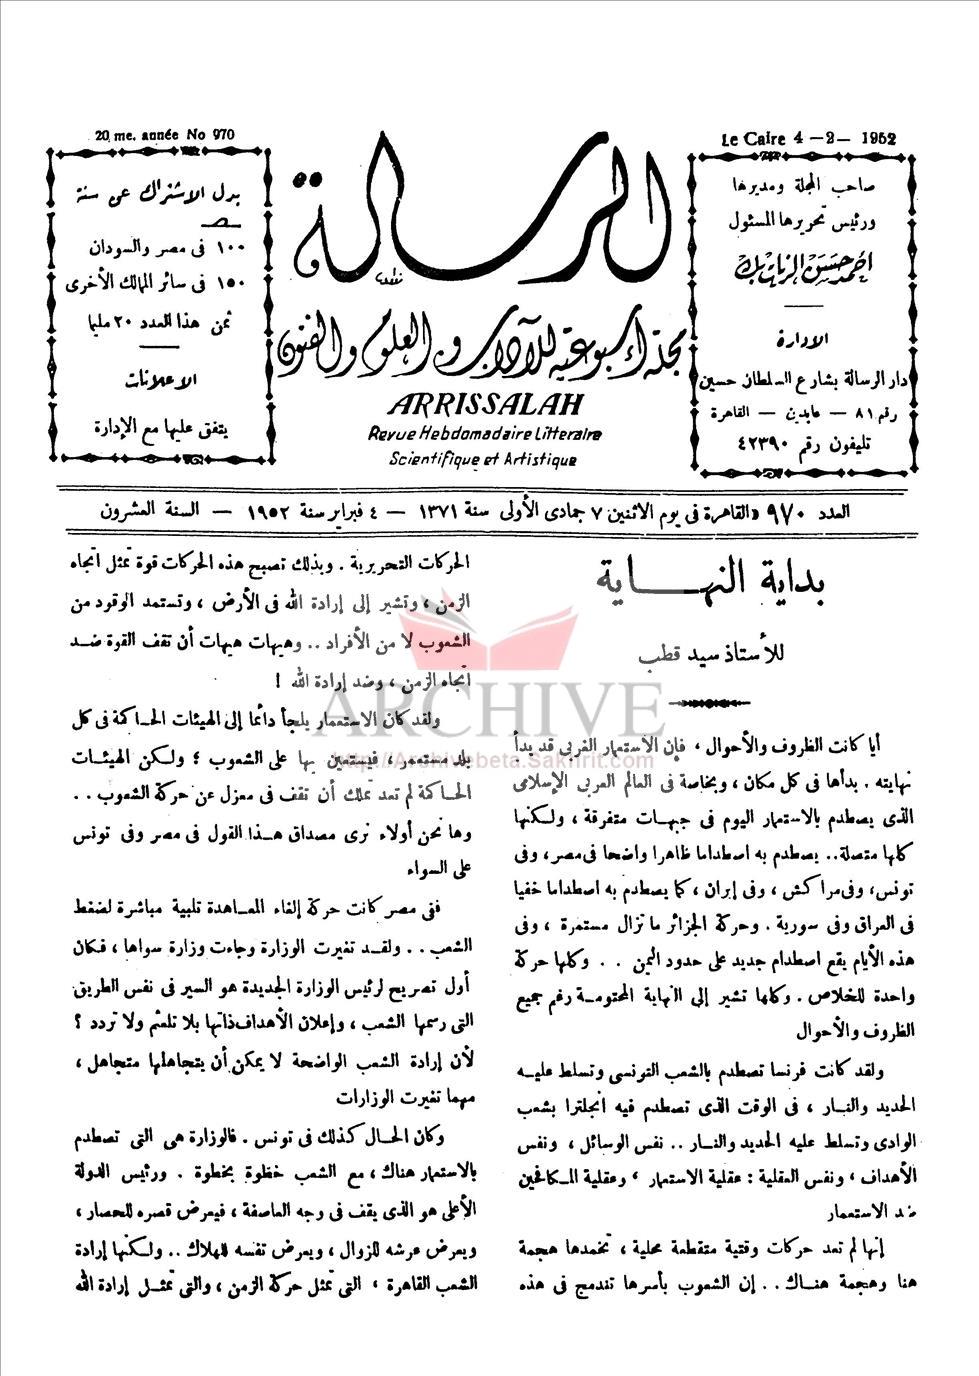 20 me. année No 970
Le Caire 4 - 2 - 1952
بدل الاشتراك عن سنة
١٠٠ فى مصر والسودان
١٥٠ فى سائر الممالك الأخرى
ثمن هذا العدد ٢٠ مليما
الاعلانات
يتفق عليها مع الإدارة
الرسالة
مجلة أسبوعية للآداب والعلوم والفنون
ARRISSALAH
Revue Hebdomadaire Litteraire
Scientifique et Artistique
صاحب المجلة ومديرها
ورئيس تحريرها المسئول
احمد حسن الزيات بك
الادارة
دار الرسالة بشارع السلطان حسين
رقم ٨١ — عابدين — القاهرة
تليفون رقم ٤٢٣٩٠
العدد ٩٧٠ «القاهرة فى يوم الاثنين ٧ جمادى الأولى سنة ١٣٧١ — ٤ فبراير سنة ١٩٥٢ — السنة العشرون
بداية النهـــاية
للأستاذ سيد قطب
أيا كانت الظروف والأحوال ، فإن الاستعمار الغربى قد بدأ
نهايته . بدأها فى كل مكان ، وبخاصة فى العالم العربى الإسلامى
الذى يصطدم بالاستعمار اليوم فى جبهات متفرقة ، ولكنها
كلها متصلة.. يصطدم به اصطداما ظاهرا واضحا فى مصر، وفى
تونس، وفى مراكش ، وفى إيران ، كما يصطدم به اصطداما خفيا
فى العراق وفى سورية . وحركة الجزائر ما تزال مستمرة ، وفى
هذه الأيام يقع اصطدام جديد على حدود اليمن . . وكلها حركة
واحدة للخلاص . وكلها تشير إلى النهاية المحتومة رغم جميع
الظروف والأحوال
ولقد كانت فرنسا تصطدم بالشعب التونسى وتسلط عليه
الحديد والنار ، فى الوقت الذى تصطدم فيه انجلترا بشعب
الوادى وتسلط عليه الحديد والنار .. نفس الوسائل ، ونفس
الأهداف ، ونفس العقلية : عقلية الاستعمار ، وعقلية المكافحين
ضد الاستعمار
إنها لم تعد حركات وقتية متقطعة محلية ، تخمدها هجمة
هنا وهجمة هناك . . إن الشعوب بأسرها تندمج فى هذه
الحركات التحريرية . وبذلك تصبح هذه الحركات قوة تمثل اتجاه
الزمن ، وتشير إلى إرادة الله فى الأرض ، وتستمد الوقود من
الشعوب لا من الأفراد .. وهيهات هيهات أن تقف القوة ضد
اتجاه الزمن ، وضد إرادة الله !
ولقد كان الاستعمار يلجأ دائما إلى الهيئات الحاكمة فى كل
بلد مستعمر ، فيستعين بها على الشعوب ؛ ولكن الهيئات
الحاكمة لم تعد تملك أن تقف فى معزل عن حركة الشعوب . .
وها نحن أولاء نرى مصداق هذا القول فى مصر وفى تونس
على السواء
ففى مصر كانت حركة إلغاء المعاهدة تلبية مباشرة لضغط
الشعب . . ولقد تغيرت الوزارة وجاءت وزارة سواها ، فكان
أول تصريح لرئيس الوزارة الجديدة هو السير فى نفس الطريق
التى رسمها الشعب ، وإعلان الأهداف ذاتها بلا تلعثم ولا تردد ؟
لأن إرادة الشعب الواضحة لا يمكن أن يتجاهلها متجاهل ،
مهما تغيرت الوزارات
وكان الحال كذلك فى تونس . فالوزارة هى التى تصطدم
بالاستعمار هناك ، مع الشعب خطوة بخطوة . ورئيس الدولة
الأعلى هو الذى يقف فى وجه العاصفة ، فيعرض قصره للحصار ،
ويعرض عرشه للزوال ، ويعرض نفسه للهلاك .. ولكنها إرادة
الشعب القاهرة ، التى تمثل حركة الزمن ، والتى تمثل إرادة الله
ARCHIVE
http://Archivebeta.Sakhrit.com